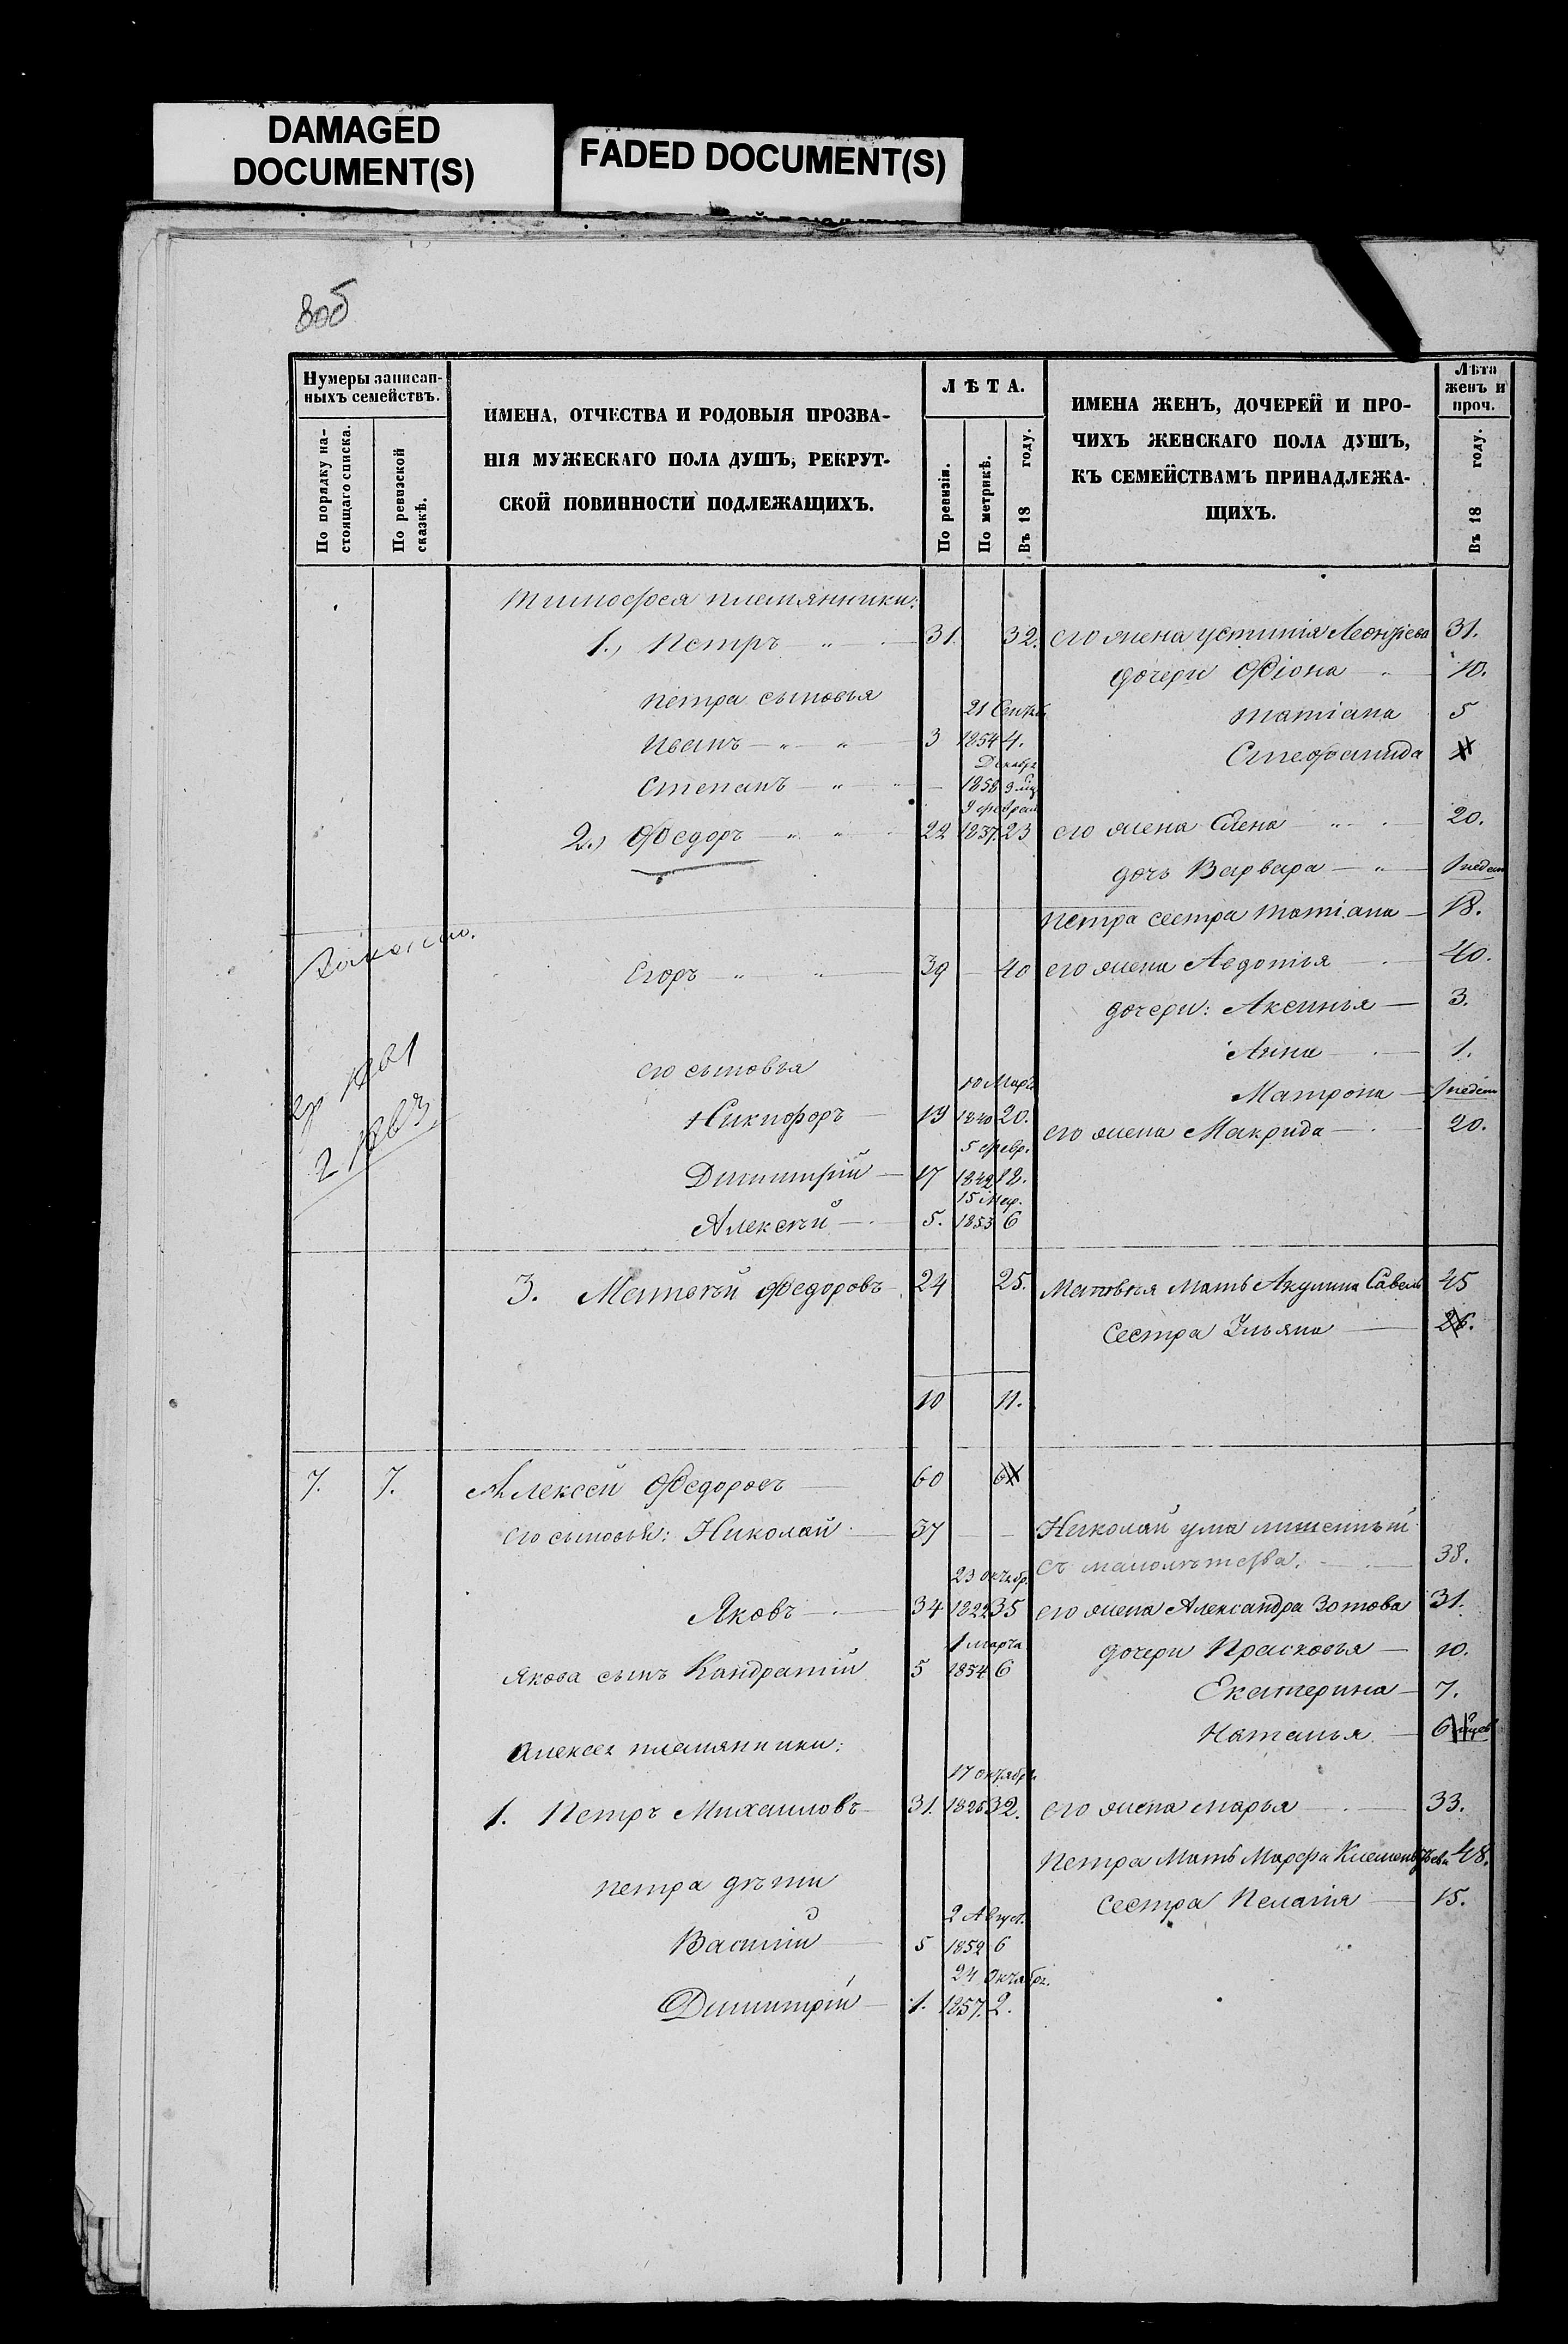 DAMAGED
DOCUMENT(S)
FADED DOCUMENT(S)
8об
Нумеры записан-
ныхъ семействъ.
По порядку на-
стоящаго списка.
По ревизской
сказкѣ.
ИМЕНА, ОТЧЕСТВА И РОДОВЫЯ ПРОЗВА-
НІЯ МУЖЕСКАГО ПОЛА ДУШЪ, РЕКРУТ-
СКОЙ ПОВИННОСТИ ПОДЛЕЖАЩИХЪ.
ЛѢТА.
По ревизіи.
По метрикѣ.
Въ 18 году.
ИМЕНА ЖЕНЪ, ДОЧЕРЕЙ И ПРО-
ЧИХЪ ЖЕНСКАГО ПОЛА ДУШЪ,
КЪ СЕМЕЙСТВАМЪ ПРИНАДЛЕЖА-
ЩИХЪ.
Лѣта
женъ и
проч.
Въ 18 году.
Тимофея племянники:
1.) Петръ 31. 32. его жена Устинія Леонтіева 31.
дочери Фіона 10.
Петра сыновья
21 Сентяб. Татіана 5
Иванъ 3 1854 4. Стефанида
Декабр.
Степанъ 1858
9 феврал
2.) Федоръ 22 1837. 23 его жена Елена 20.
дочь Варвара
Петра сестра Татіана 18.
Егоръ 39 40 его жена Авдотья 40.
дочери: Аксинья 3.
Анна 1.
его сыновья
10 Март. Матрона
Никифоръ 19 1840 20. его жена Макрида 20.
5 февр.
Димитрій 17 1842 18.
15 Мар.
Алексѣй 5. 1853 6
3. Матвѣй Федоровъ 24 25. Матвѣя Мать Акулина Савель 45
Сестра Ульяна 26.
10 11.
7. 7. Алексей Федоровъ 60
его сыновья: Николай 37 Николай ума лишенный
съ малолѣтства. 38.
23 октябр.
Яковъ 34 1822 35 его жена Александра Зотова 31.
1 марта дочери Прасковья 10.
Якова сынъ Кандратій 5 1854 6
Екатерина 7.
Наталья 6
Алексея племянники:
17 октябр.
1. Петръ Михаиловъ 31. 1826 32. его жена Марья 33.
Петра Мать Марфа Клементьева 48.
Петра дѣти
Сестра Пелагія 15.
2 Август.
Василій 5 1852 6
24 Октябр.
Димитрій 1. 1857. 2.